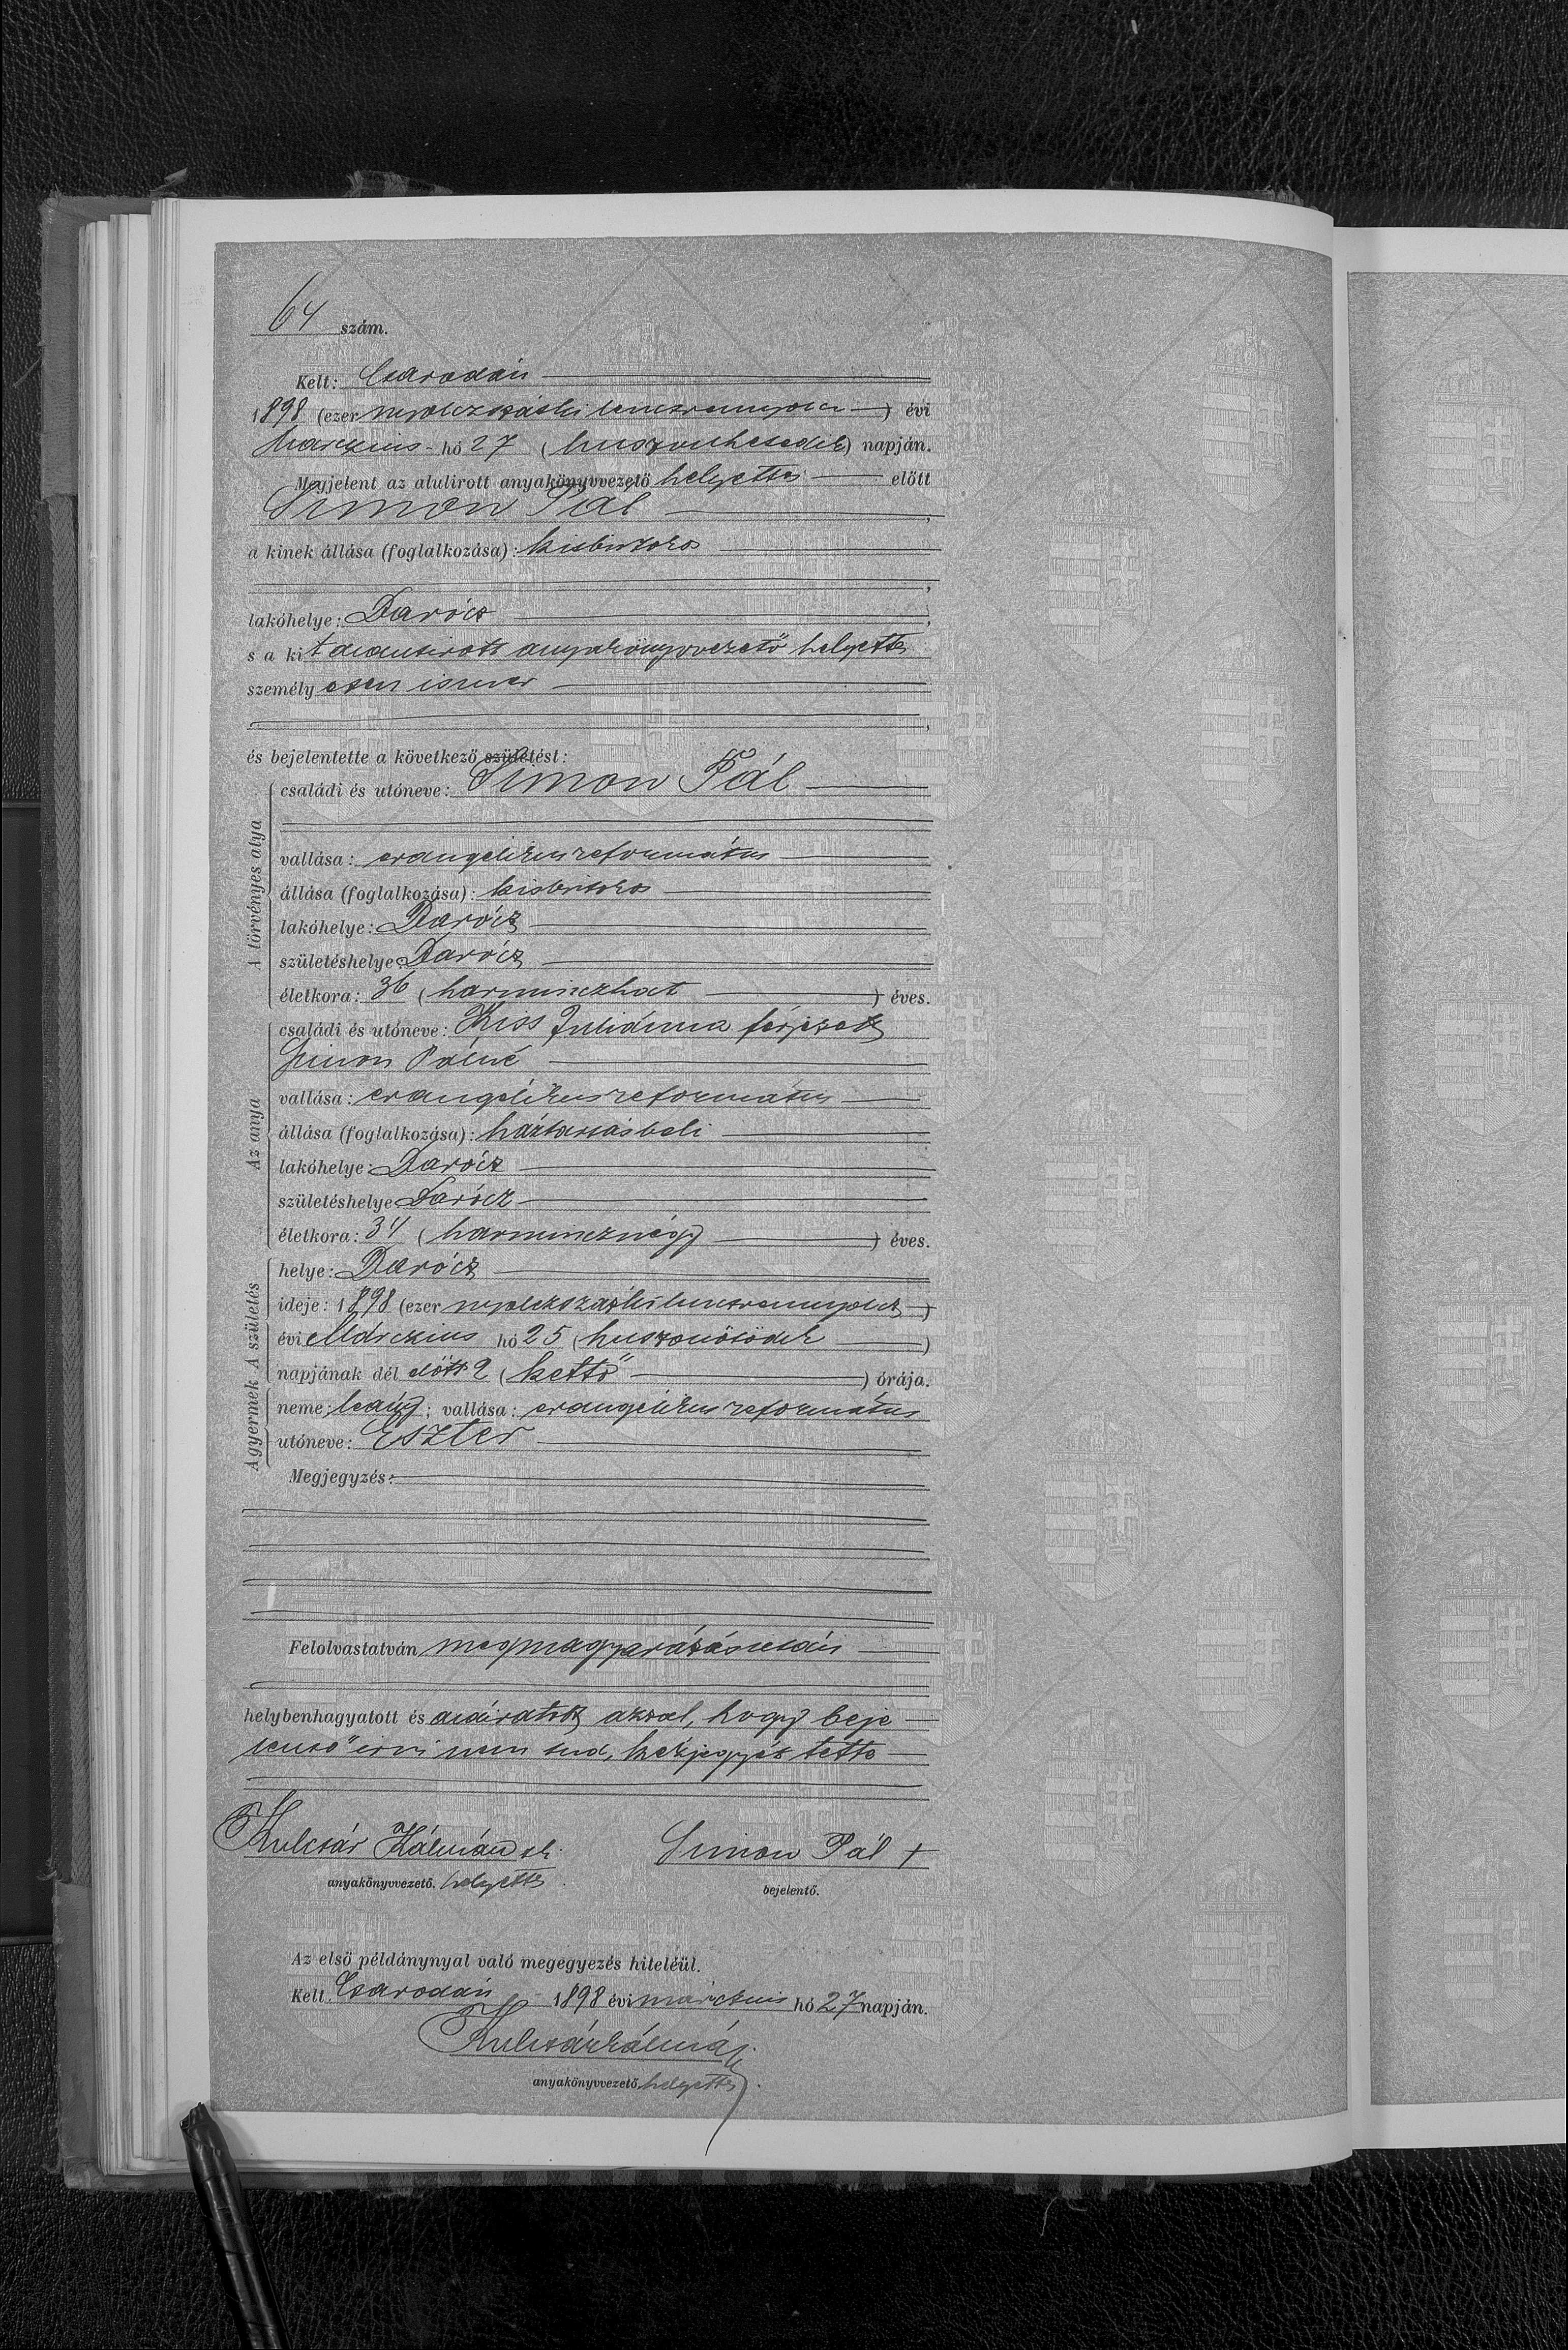 64 szám.
Kelt: Csarodán
1898 (ezer nyolczszázkilenczvennyolcz) évi
Márczius hó 27 (huszonhetedik) napján.
Megjelent az alulirott anyakönyvvezető helyettes előtt
Simon Pál,
a kinek állása (foglalkozása): kisbirtokos
lakóhelye: Darócz,
s a kit alantirott anyakönyvvezető helyettes
személyesen ismer
és bejelentette a következő születést:
A törvényes atya
családi és utóneve: Simon Pál
vallása: evangélikus református
állása (foglalkozása): kisbirtokos
lakóhelye: Darócz
születéshelye Darócz
életkora: 36 (harminczhat) éves.
Az anya
családi és utóneve: Kiss Juliánna férjezett
Simon Pálné
vallása: evangélikus református
állása (foglalkozása): háztartásbeli
lakóhelye: Darócz
születéshelye Darócz
életkora: 34 (harmincznégy) éves.
A születés
helye: Darócz
ideje: 1898 (ezer nyolczszázkilenczvennyolcz)
évi Márczius hó 25 (huszonötödik)
napjának dél előtt 2 (kettő) órája.
A gyermek
neme: leány; vallása: evangélikus református
utóneve: Eszter
Megjegyzés:
Felolvastatván megmagyarázás után
helybenhagyatott és aláiratott azzal, hogy beje
lentő irni nem tud, kézjegyét tette
Kulcsár Kálmán sk. Simon Pál +
anyakönyvvezető. helyettes. bejelentő.
Az első példánynyal való megegyezés hiteléül.
Kelt Csarodán 1898 évi márczius hó 27 napján.
Kulcsár Kálmán
anyakönyvvezető helyettes.